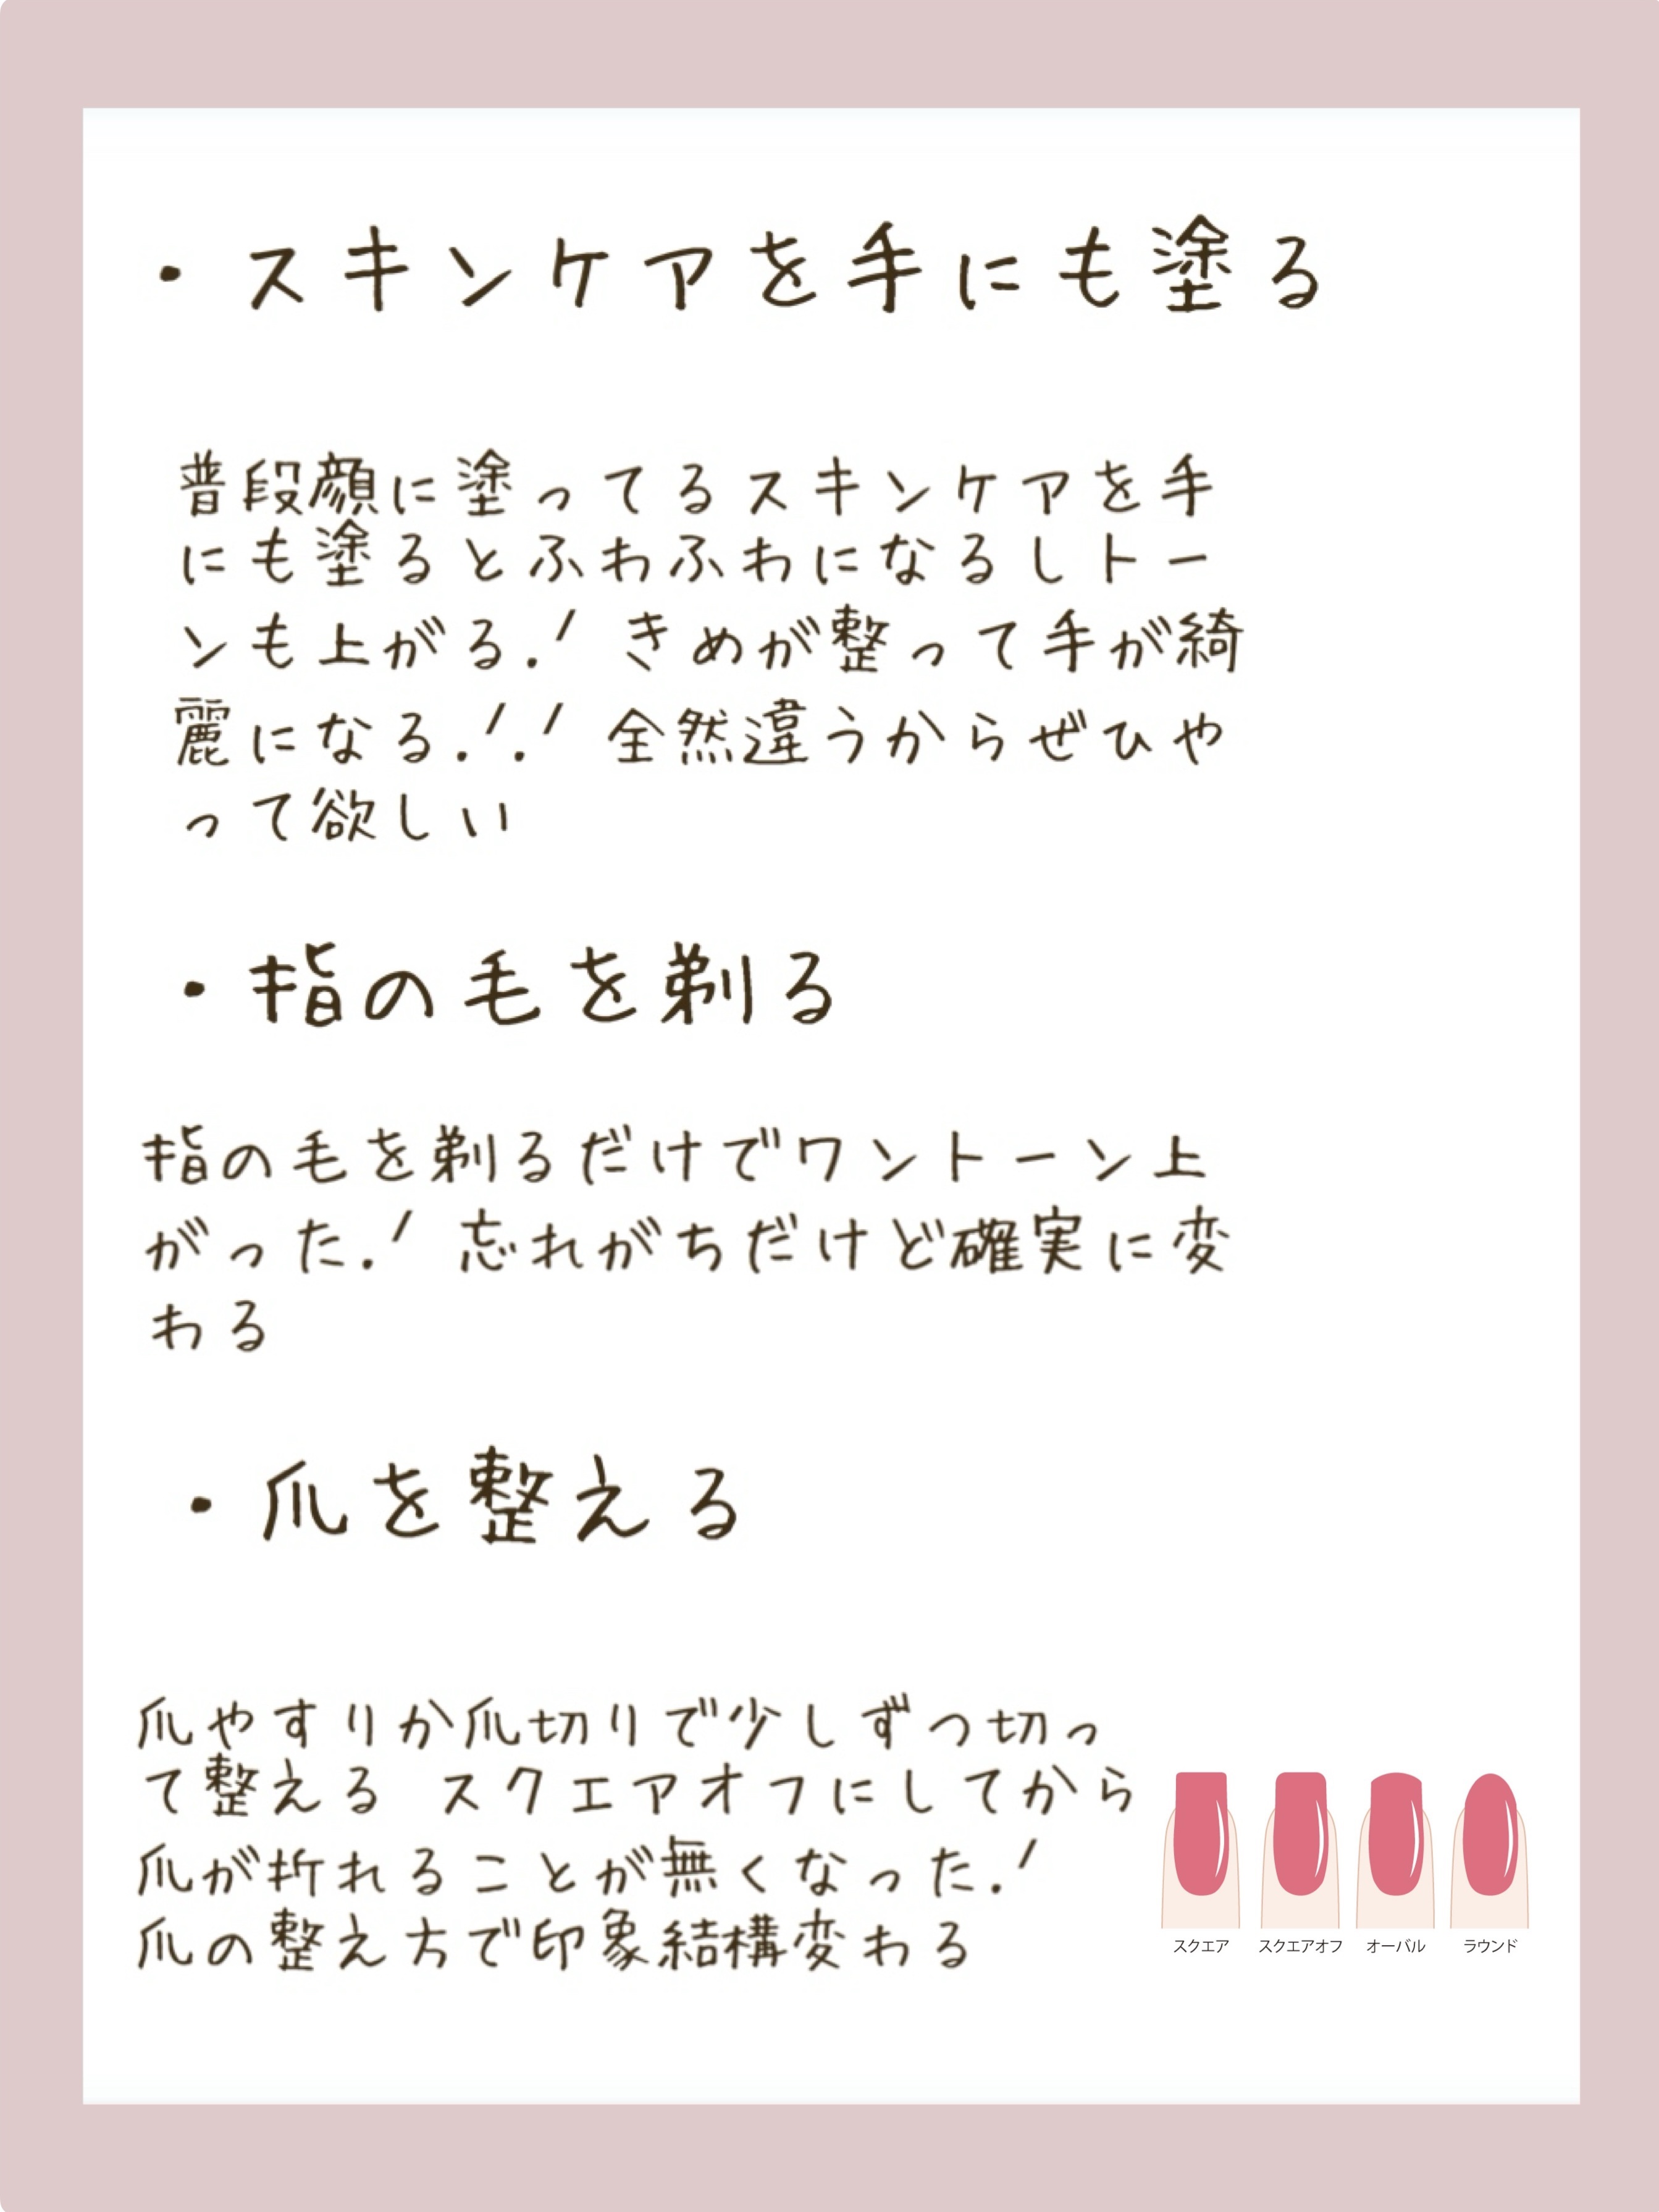 ・スキンケアを手にも塗る
普段顔に塗ってるスキンケアを手
にも塗るとふわふわになるしトー
ンも上がる！きめが整って手が綺
麗になる！！全然違うからぜひや
って欲しい
・指の毛を剃る
指の毛を剃るだけでワントーン上
がった！忘れがちだけど確実に変
わる
・爪を整える
爪やすりか爪切りで少しずつ切っ
て整える スクエアオフにしてから
爪が折れることが無くなった！
爪の整え方で印象結構変わる
スクエア スクエアオフ オーバル ラウンド